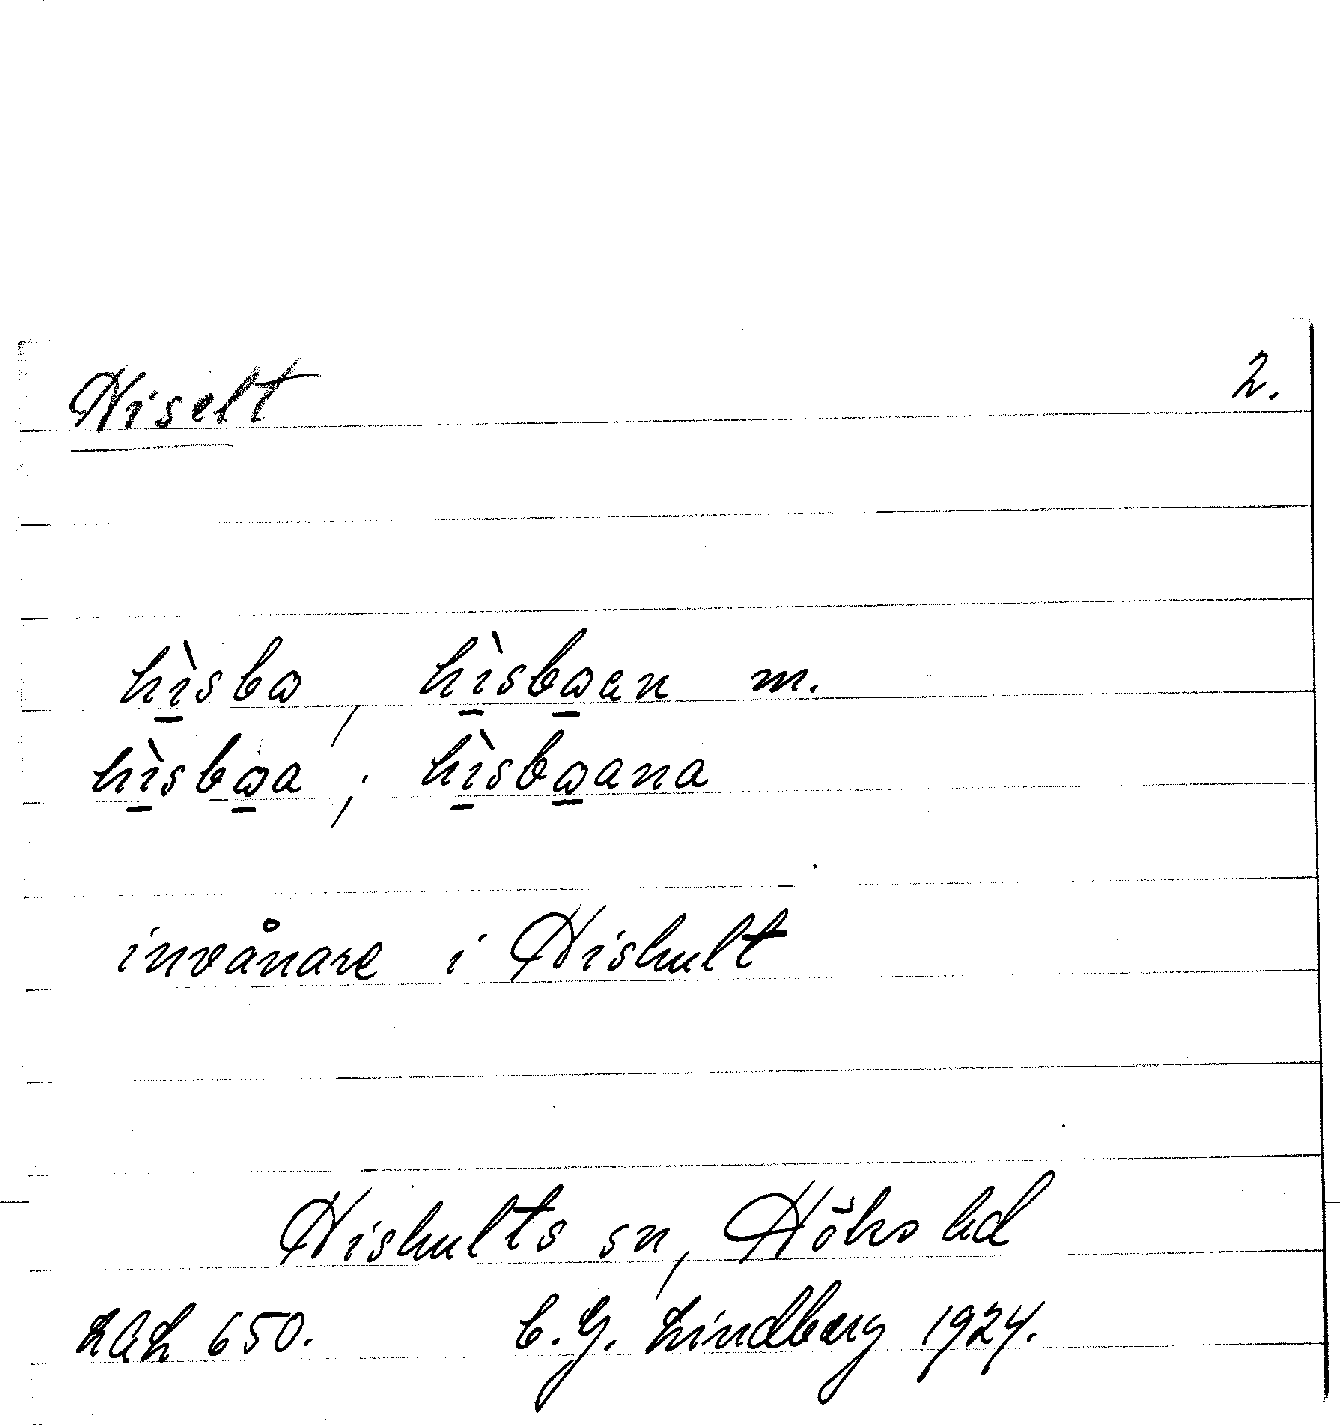 Hiselt 2.
hìsbɷ, hìsbɷen m.
hìsbɷa; hìsbɷana
invånare i Hishult
Hishults sn, Höks hd
LAL 650. C.G. Lindberg 1924.